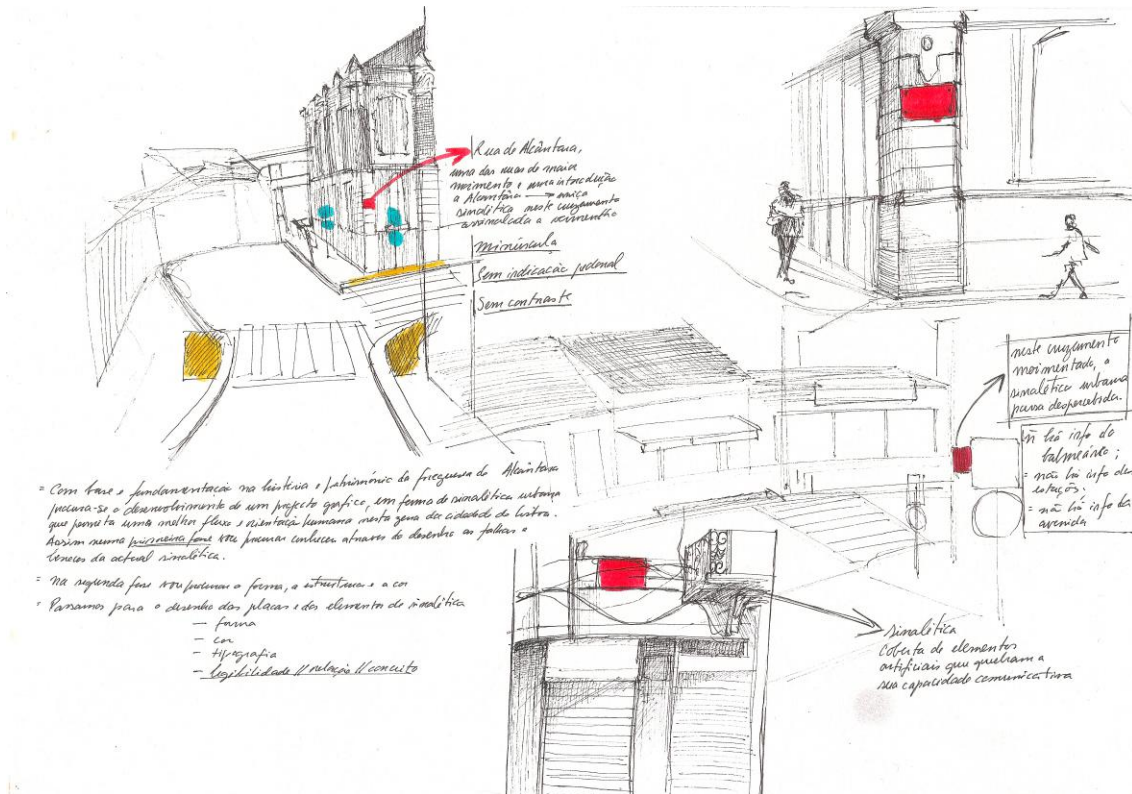 Rua de Alcântara,
uma das ruas de maior
movimento e uma introdução
a Alcântara → única
sinalética neste cruzamento
assinalada a vermelho
Minúscula
Sem indicação pedonal
Sem contraste
neste cruzamento
movimentado, a
sinalética urbana
passa despercebida.
ñ há info do
balneário;
= não há info das
estações;
= não há info da
avenida
= Com base e fundamentação na história e património da freguesia de Alcântara
procura-se o desenvolvimento de um projecto grafico, em forma de sinalética urbana
que permita uma melhor fluxo e orientação humana nesta zona da cidade de Lisboa.
Assim numa primeira fase vou procurar conhecer atraves do desenho as falhas e
da actual sinalética.
= na segunda fase vou procurar a forma, a estrutura e a cor
= Passamos para o desenho das placas e dos elementos de sinalética
— forma
— cor
— tipografia
— legibilidade // relação // conceito
sinalética
coberta de elementos
artificiais que quebram a
sua capacidade comunicativa